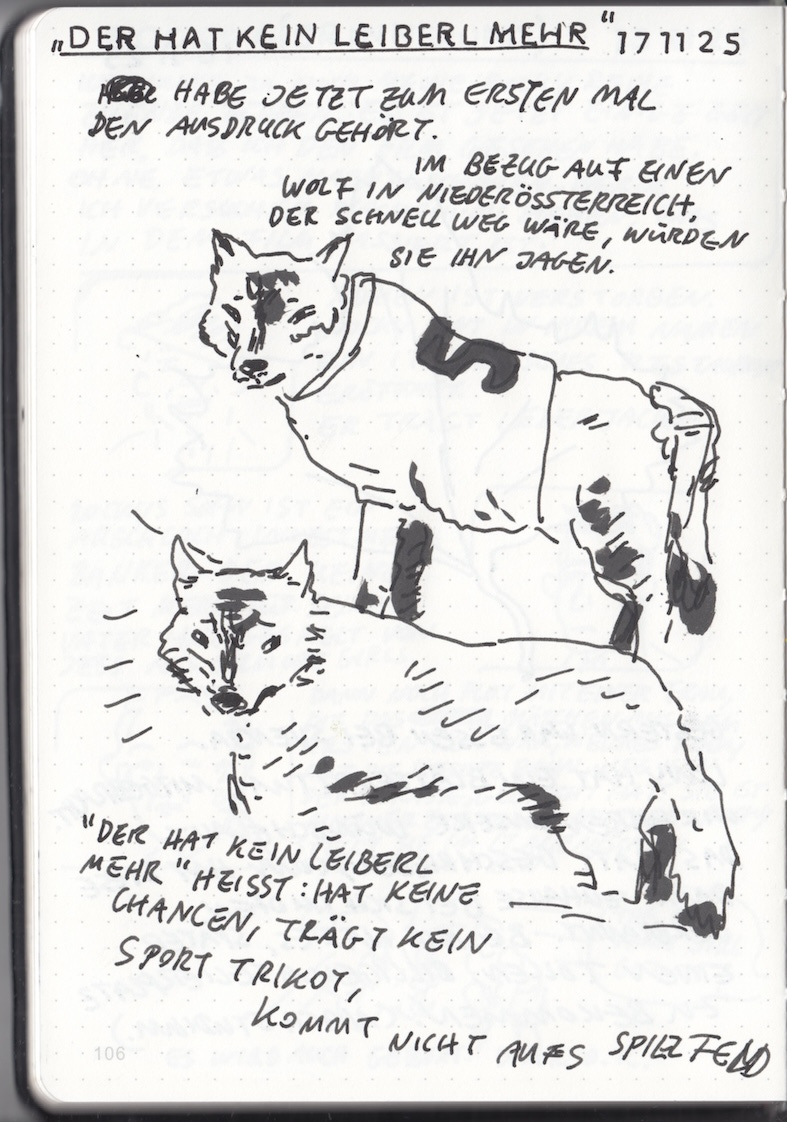 „DER HAT KEIN LEIBERL MEHR“ 17 11 25
HABE JETZT ZUM ERSTEN MAL
DEN AUSDRUCK GEHÖRT.
IM BEZUG AUF EINEN
WOLF IN NIEDERÖSSTERREICH,
DER SCHNELL WEG WÄRE, WÜRDEN
SIE IHN JAGEN.
5
"DER HAT KEIN LEIBERL
MEHR" HEISST: HAT KEINE
CHANCEN, TRÄGT KEIN
SPORT TRIKOT,
KOMMT NICHT AUFS SPIELFELD
106